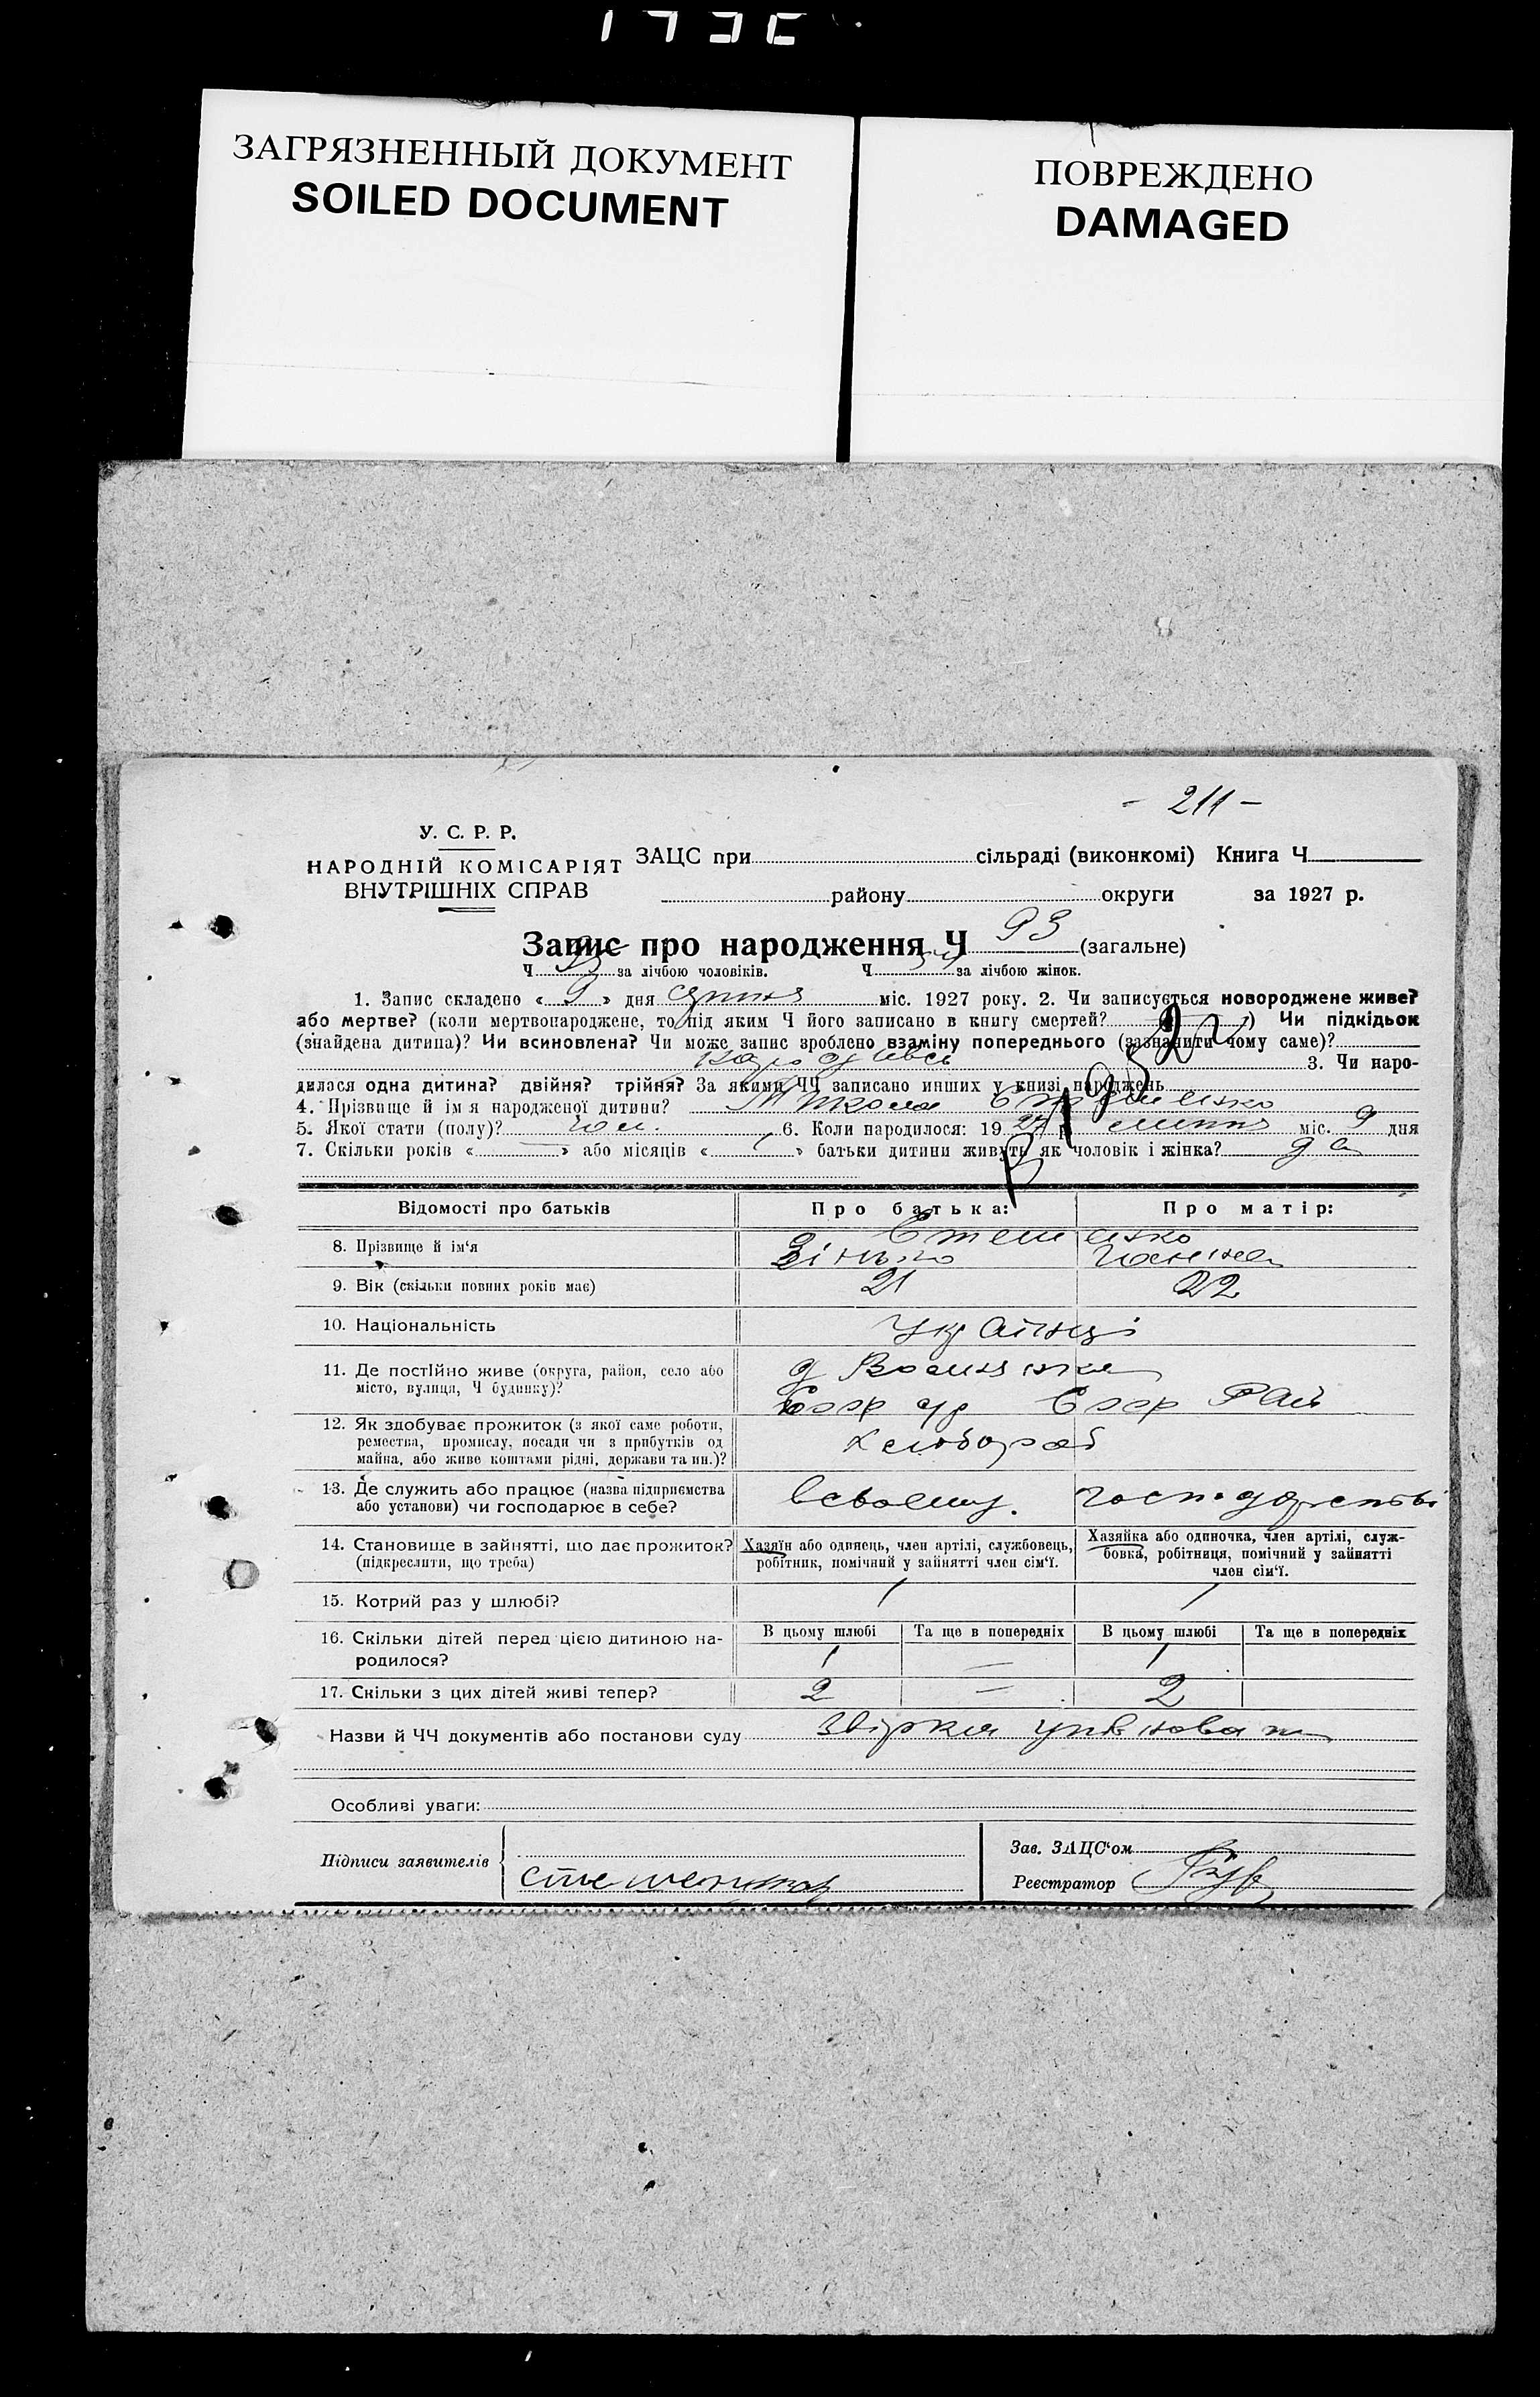 ЗАГРЯЗНЕННЫЙ ДОКУМЕНТ
SOILED DOCUMENT
ПОВРЕЖДЕНО
DAMAGED
- 211 -
У. С. Р. Р.
НАРОДНІЙ КОМІСАРІЯТ
ВНУТРІШНІХ СПРАВ
ЗАЦС при сільраді (виконкомі) Книга Ч
району округи за 1927 р.
Запис про народження Ч 93 (загальне)
Ч за лічбою чоловіків. Ч за лічбою жінок.
1. Запис складено « 9 » дня міс. 1927 року. 2. Чи записується новороджене живе?
або мертве? (коли мертвонароджене, то під яким Ч його записано в книгу смертей? ) Чи підкідьок
(знайдена дитина)? Чи всиновлена? Чи може запис зроблено взаміну попереднього (зазначити чому саме)?
3. Чи наро-
дилася одна дитина? двійня? трійня? За якими ЧЧ записано инших у книзі народжень
4. Прізвище й ім'я народженої дитини? Микола
5. Якої стати (полу)? чол. 6. Коли народилося: 19 27 р. липня міс. 9 дня
7. Скільки років « — » або місяців « » батьки дитини живуть як чоловік і жінка? да
Відомості про батьків
Про батька:
Про матір:
8. Прізвище й ім'я
9. Вік (скільки повних років має) 21 22
10. Національність Українці
11. Де постійно живе (округа, район, село або
місто, вулиця, Ч будинку)?
12. Як здобуває прожиток (з якої саме роботи,
ремества, промислу, посади чи з прибутків од
майна, або живе коштами рідні, держави та ин.)?
хлібороб
13. Де служить або працює (назва підприємства
або установи) чи господарює в себе?
всвоєму. господарстві
14. Становище в зайнятті, що дає прожиток?
(підкреслити, що треба)
Хазяїн або одинець, член артілі, службовець,
робітник, помічний у зайнятті член сім'ї.
Хазяйка або одиночка, член артілі, служ-
бовка, робітниця, помічний у зайнятті
член сім'ї.
15. Котрий раз у шлюбі? 1 1
16. Скільки дітей перед цією дитиною на-
родилося?
В цьому шлюбі Та ще в попередніх В цьому шлюбі Та ще в попередніх
1 — 1
17. Скільки з цих дітей живі тепер? 2 — 2
Назви й ЧЧ документів або постанови суду
Особливі уваги:
Підписи заявителів
Зав. ЗАЦС'ом
Реєстратор